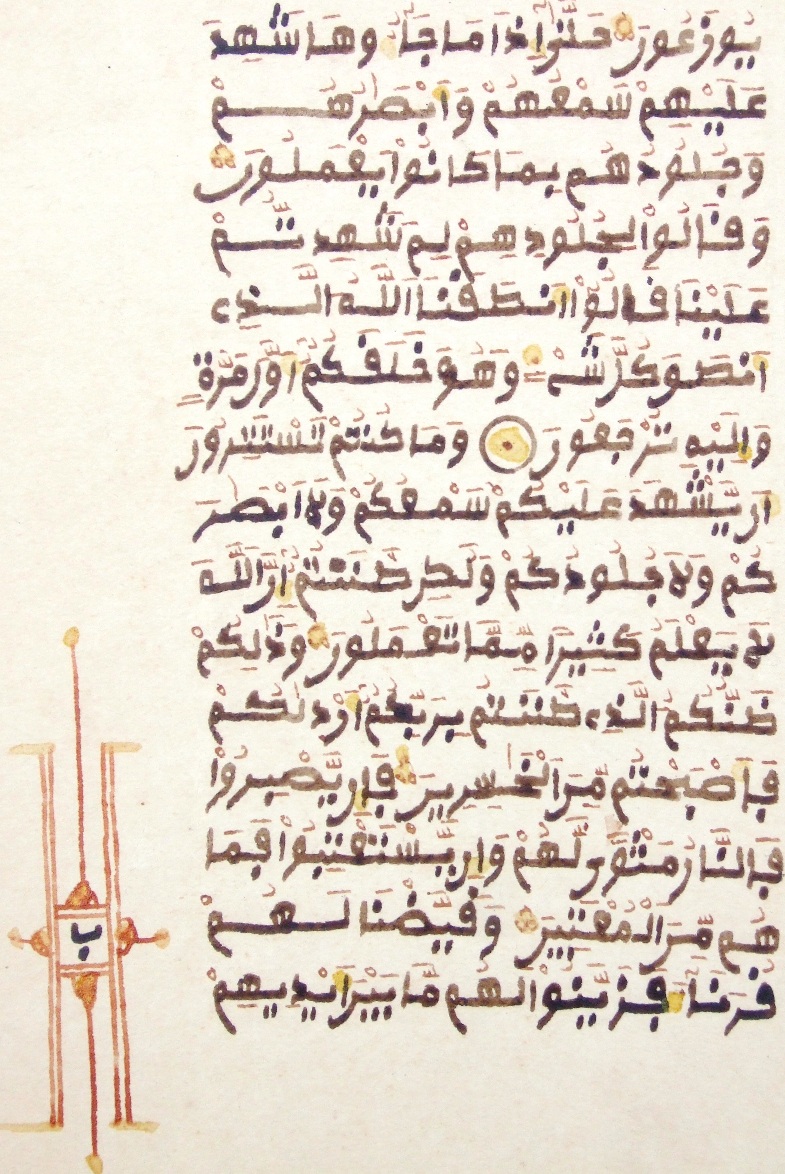 يُوزَعُونَ حَتَّىٰ إِذَا مَا جَآءُوهَا شَهِدَ
عَلَيْهِمْ سَمْعُهُمْ وَأَبْصَٰرُهُمْ
وَجُلُودُهُم بِمَا كَانُوا۟ يَعْمَلُونَ
وَقَالُوا۟ لِجُلُودِهِمْ لِمَ شَهِدتُّمْ
عَلَيْنَا قَالُوٓا۟ أَنطَقَنَا ٱللَّهُ ٱلَّذِىٓ
أَنطَقَ كُلَّ شَىْءٍ وَهُوَ خَلَقَكُمْ أَوَّلَ مَرَّةٍ
وَإِلَيْهِ تُرْجَعُونَ وَمَا كُنتُمْ تَسْتَتِرُونَ
أَن يَّشْهَدَ عَلَيْكُمْ سَمْعُكُمْ وَلَآ أَبْصَٰرُ
كُمْ وَلَا جُلُودُكُمْ وَلَٰكِن ظَنَنتُمْ أَنَّ ٱللَّهَ
لَا يَعْلَمُ كَثِيرًا مِّمَّا تَعْمَلُونَ وَذَٰلِكُمْ
ظَنُّكُمُ ٱلَّذِى ظَنَنتُم بِرَبِّكُمْ أَرْدَىٰكُمْ
فَأَصْبَحْتُم مِّنَ ٱلْخَٰسِرِينَ فَإِن يَّصْبِرُوا۟
فَٱلنَّارُ مَثْوًى لَّهُمْ وَإِن يَّسْتَعْتِبُوا۟ فَمَا
هُم مِّنَ ٱلْمُعْتَبِينَ وَقَيَّضْنَا لَهُمْ
قُرَنَآءَ فَزَيَّنُوا۟ لَهُم مَّا بَيْنَ أَيْدِيهِمْ
ب